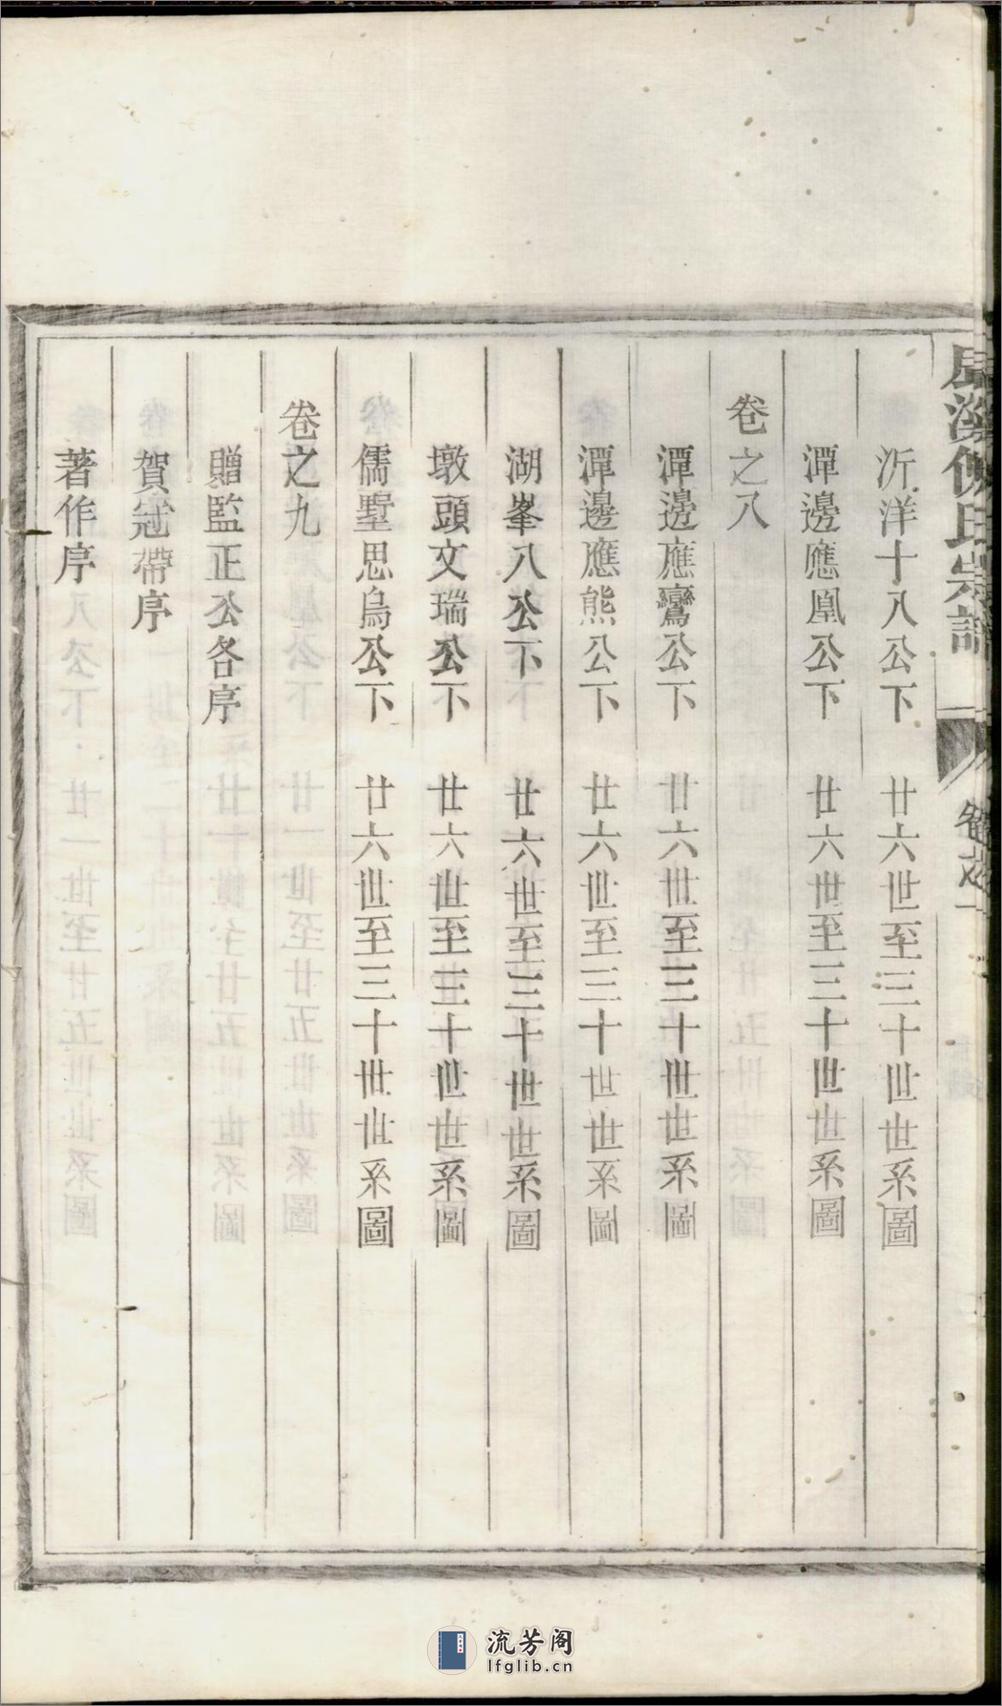 溪倪氏宗譜
卷之一
沂洋十八公下 廿六世至三十世世系圖
潭邊應凰公下 廿六世至三十世世系圖
卷之八
潭邊應鸞公下 廿六世至三十世世系圖
潭邊應熊公下 廿六世至三十世世系圖
湖峯八公下 廿六世至三十世世系圖
墩頭文瑞公下 廿六世至三十世世系圖
儒墅思烏公下 廿六世至三十世世系圖
卷之九
贈監正公各序
賀冠帶序
著作序
流芳阁
lfglib.cn